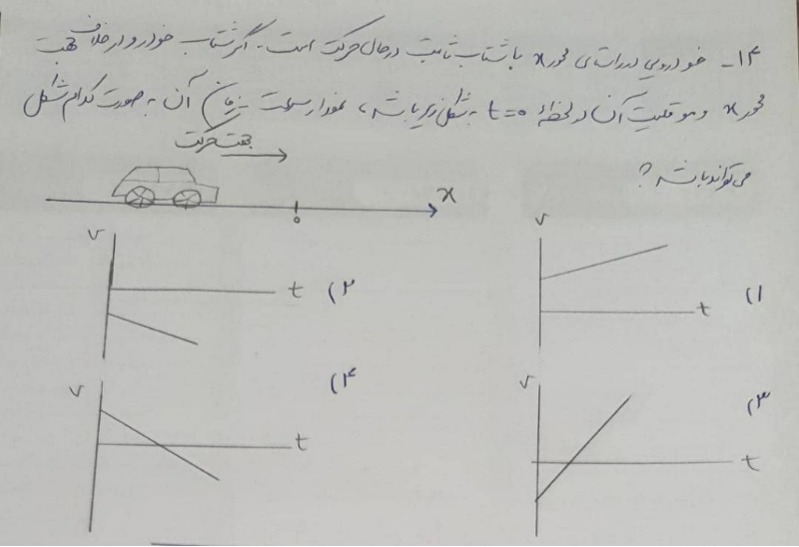 ۱۴- خودرویی در راستای محور x با شتاب ثابت در حال حرکت است. اگر شتاب خودرو در خلاف جهت
محور x و موقعیت آن در لحظهٔ t = ۰ به شکل زیر باشد، نمودار سرعت - زمان آن به صورت کدام شکل
می‌تواند باشد؟
جهت حرکت
x
۰
v
t
(۱
v
t
(۲
v
t
(۳
v
t
(۴